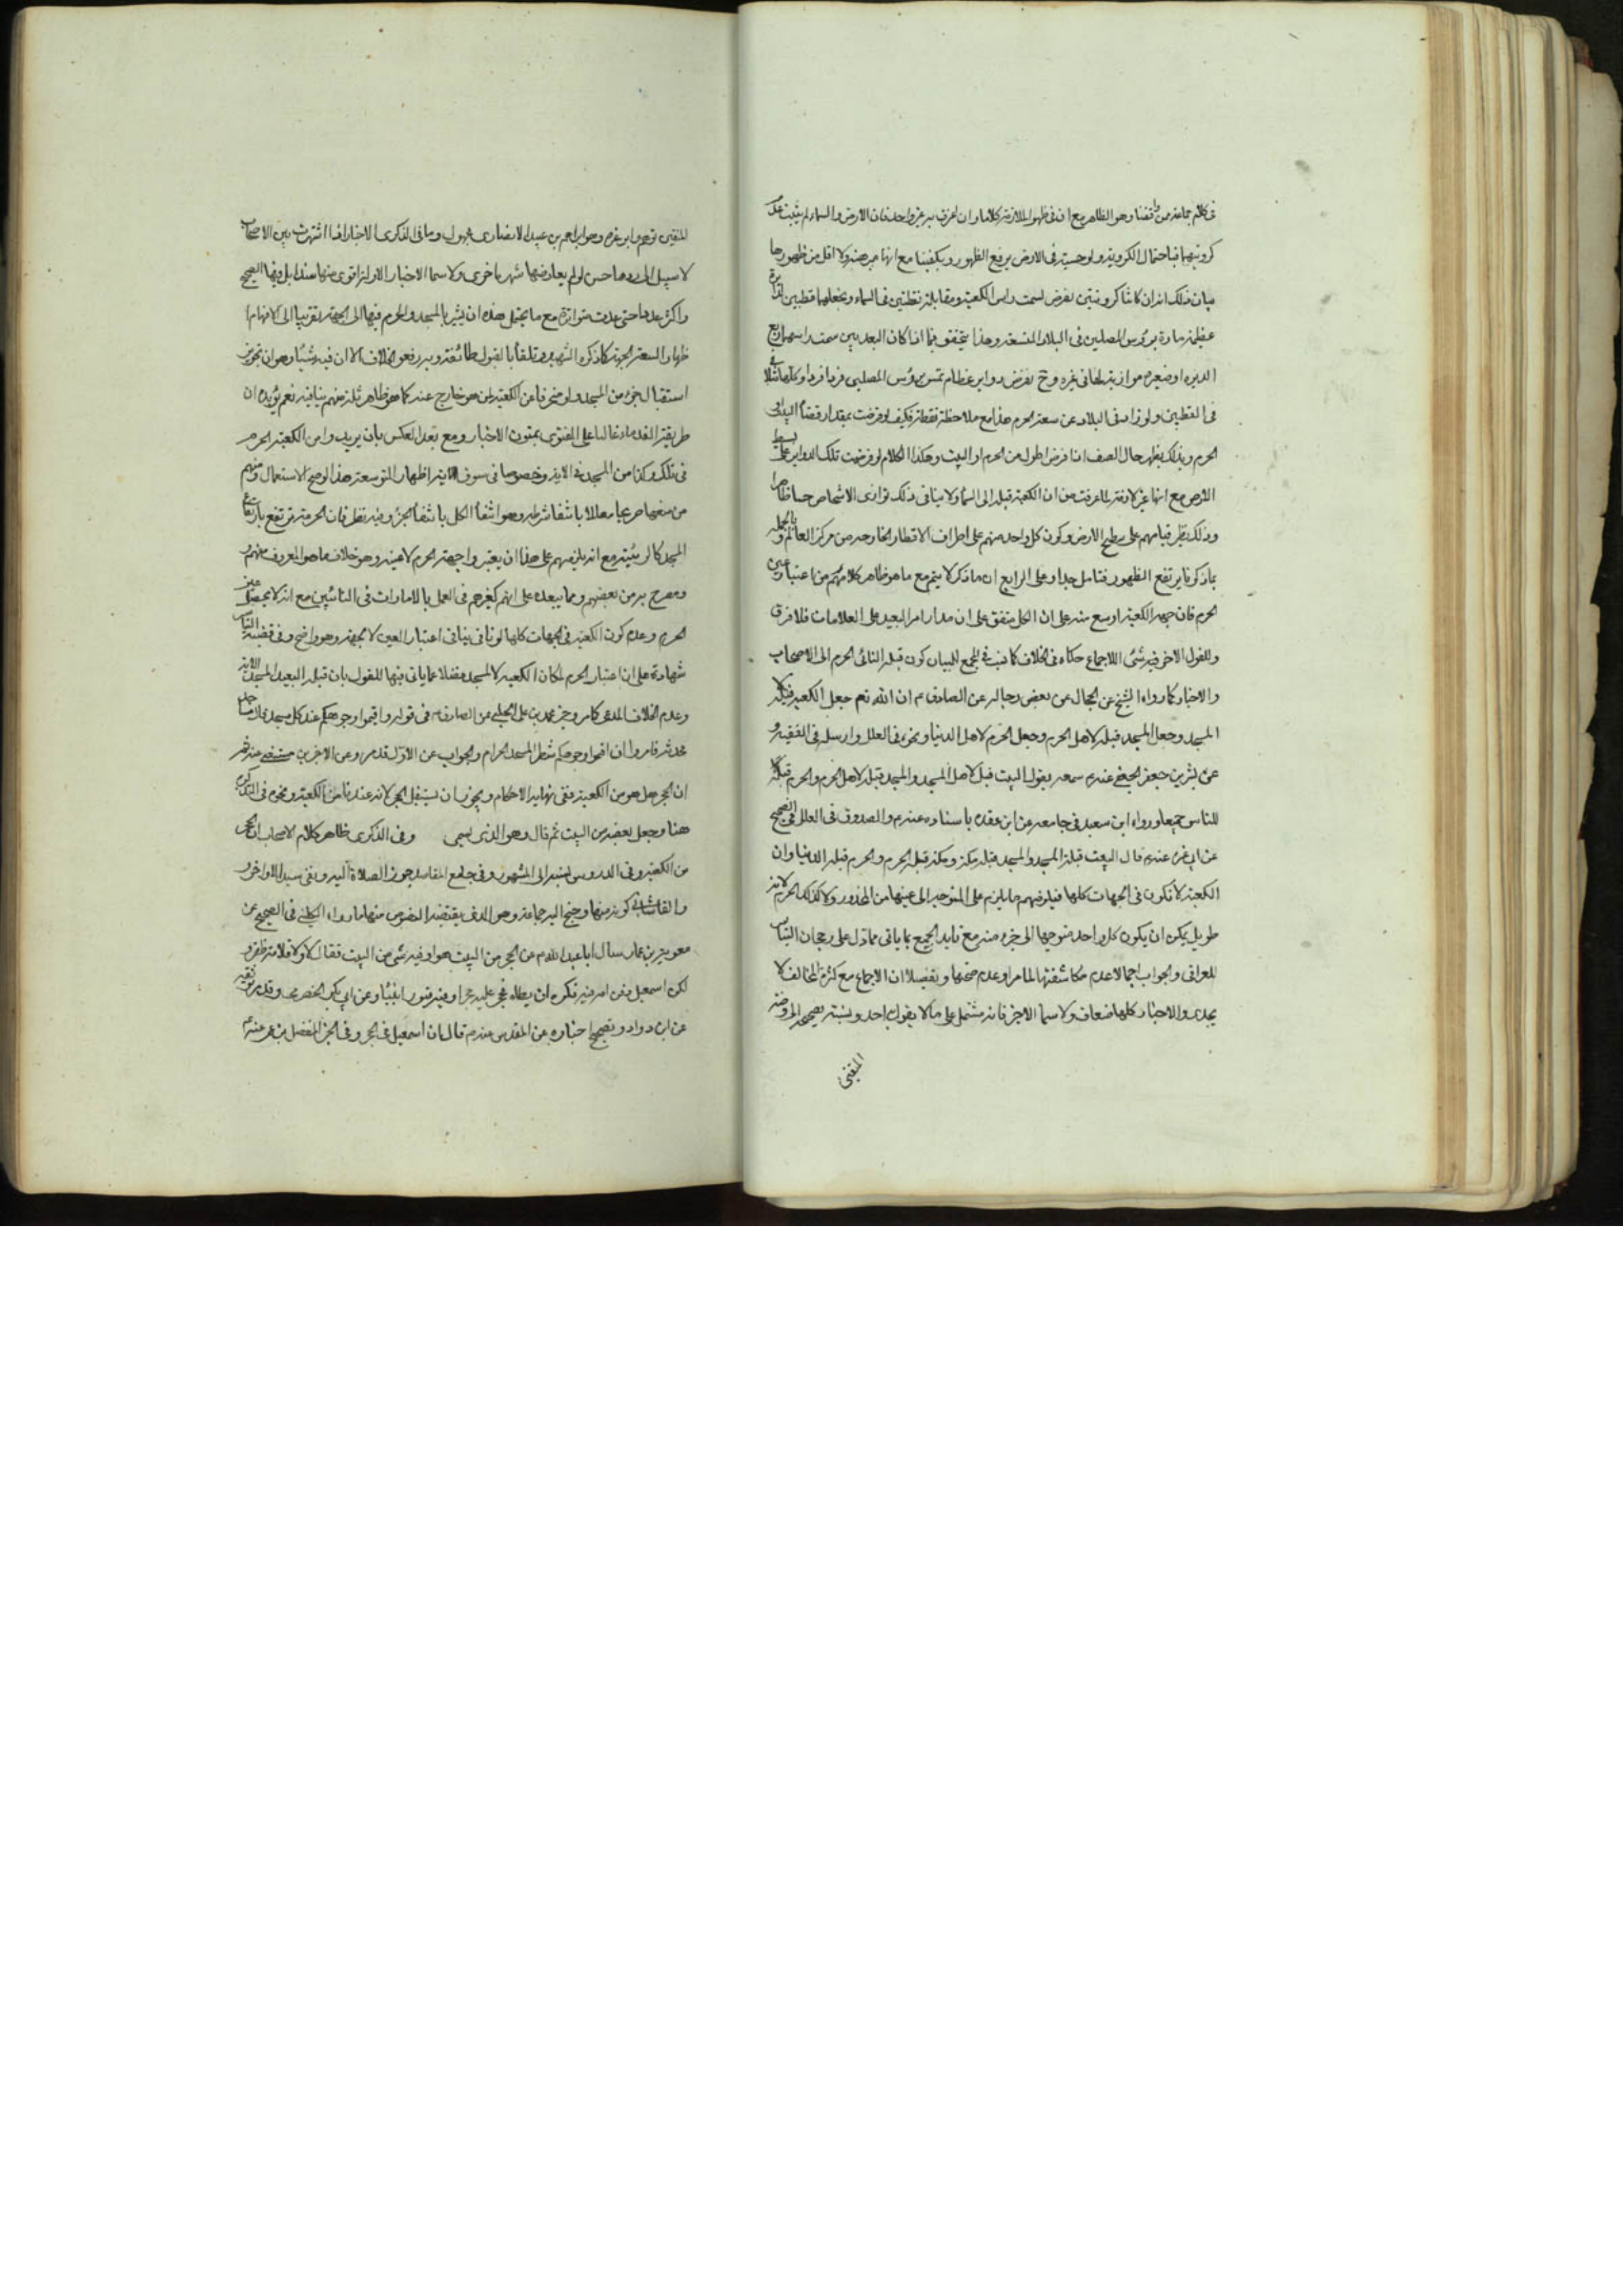 في كلام جماعة من وافقنا وهو الظاهر مع ان في ظهوا الملازمة كلاما وان اعترف به غير واحد فان الارض والسماء لم يثبت عند
كرويتهما فباحتمال الكروية ولو حسية في الارض يرفع الظهور ويكفينا مع انها مبرهنة ولا اقل من ظهورها
بيان ذلك انه ان كانتا كرويتين نفرض لسمت راس الكعبة ومقابله نقطتين في السماء ونجعلهما قطبين لدائرة
عظيمة مارة برؤس المصلين في البلاد المتسعة وهذا يتفق فيما اذا كان البعد بين سمت راسهما ربع
الديره او ضعيره موازية لها في غيره وح نفرض دواير عظام تمس رؤس المصلين فردا فردا وكلها تتلاقى
في القطبين ولو زاد في البلاد عن سعة الحرم هذا مع ملاحظة نقطة فكيف لو فرضت بمقدار فضاء البيت او
الحرم وبذلك يظهر حال الصف اذا فرض اطول من الحرم او البيت وهكذا الكلام لو فرضت تلك الدواير على بسيط
الارض مع انها غير لازمة لما عرفت من ان الكعبة قبلة الى السماء ولا ينافي ذلك توازى الاشخاص حسا ظاهرا
وذلك بنظر قيامهم على سطح الارض وكون كل واحد منهم على اطراف الاقطار الخارجة من مركز العالم وبالجملة
بما ذكرنا يرتفع الظهور فتامل جدا وعلى الرابع ان ما ذكر لا يتم مع ما هو ظاهر كلامهم من اعتبار عين
الحرم فان جهة الكعبة اوسع منه على ان الكل متفق على ان مدار امر البعيد على العلامات فلا فرق
وللقول الاخر فيه شئ اللاجماع حكاه في الخلاف كما نسب في المجمع البيان كون قبلة النائى الحرم الى الاصحاب
والاخبار كما رواه الشيخ عن الحجال عن بعض رجاله عن الصادق م ان الله تعم جعل الكعبة قبلة لاهل
المسجد وجعل المسجد قبلة لاهل الحرم وجعل الحرم لاهل الدنيا ونحوه في العلل وارسله في الفقيه و
عن بشر بن جعفر الجعفي عنه م سمعه يقول البيت قبلة لاهل المسجد والمسجد قبلة لاهل الحرم والحرم قبلة
للناس جميعا ورواه ابن سعيد في جامعه عن ابن عقده باسناده عنه م والصدوق في العلل في الصحيح
عن ابي غره عنه م قال البيت قبلة المسجد والمسجد قبلة مكة ومكة قبلة الحرم والحرم قبلة الدنيا وان
الكعبة لا تكون في الجهات كلها فيلزمهم ما يلزم على المتوجه الى عينها من المحذور ولا كذلك الحرم لانه
طويل يمكن ان يكون كل واحد متوجها الى جزء منه مع تايد الجميع بما ياتى مما دل على رجحان التياسر
للعراقى والجواب اجمالا عدم مكاشفتها لما مر او عدم صحتها وتفصيلا ان الاجماع مع كثرة المخالف لا
يجدى والاخبار كلها ضعاف ولا سيما الاخير فانه مشتمل على ما لا يقول به احد ونسبته بصحيحه الروضة
المتقى
المتقين توهم وابو غره وهو ابراهيم بن عبيد الانصارى مجهول وما في الذكرى الاخبار اذا اشتهرت بين الاصحاب
لا سبيل الى ردها حسن لو لم يعارضها شهرة اخرى ولا سيما الاخبار الاول انه اقوى منها سندا بل وفيها الصحيح
واكثر عددا حتى عدت متواترة مع ما يحتمل هذه ان يشير بالمسجد والحرم فيها الى الجهة تقريبا الى الافهام
ظهار السعة الجهة كما ذكره الشهيد وتلقاه بالقبول طائفة وبه رفعوا الخلاف الا ان فيه شيئا وهو ان تجويز
استقبال جزء من المسجد ولو منحرفا عن الكعبة لمن هو خارج عنه كما هو ظاهر ثلة منهم ينافيه نعم يؤيده ان
طريقة القدماء غالبا على الفتوى بمتون الاخبار ومع بعد العكس بان يريدوا من الكعبة الحرم
في تلك وكذا من المسجد في الاية وخصوصا في سوق الاية اظهار التوسعة هذا لوضح الاستعمال ومنهم
من منعها صريحا معللا بانتفاء شرطه وهو انتفاء الكل بانتفاء الجزء وفيه نظر فان الحرمة ترتفع بارتفاع
المسجد كالربيئة مع انه يلزمهم على هذا ان يعتبروا جهة الحرم لا عينه وهو خلاف ما هو المعروف منهم و
ومصرح به من بعضهم ومما يبعده على انهم كغيرهم في العمل بالامارات في النائين مع انه لا يحصل عين
الحرم وعدم كون الكعبة في الجهات كلها لو نافى ينافى اعتبار العين لا الجهة وهو واضح وفي قضية التياسر
شهادة على ان اعتبار الحرم لمكان الكعبة لا المسجد فضلا عما ياتى فيها للقول بان قبلة البعيد المسجد الاية
وعدم الخلاف المدعى كما مر وخبر محمد بن على الحلبي عن الصادق م في قوله واقيموا وجوهكم عند كل مسجد قال مساجد
محدثة فامروا ان اقيموا وجوهكم شطر المسجد الحرام والجواب عن الاول قد مر وعن الاخرين مستقصى عنه ثم
ان الحجر هل هو من الكعبة ففى نهاية الاحكام ويجوز ان يستقبل الحجر لانه عندنا من الكعبة ونحوه في التذكرة
هنا وجعل بعضه من البيت ثم قال وهو الذى يسمى وفى الذكرى ظاهر كلام الاصحاب ان الحجر
من الكعبة وفى الدروس نسبه الى المشهور وفى جامع المقاصد يجوز الصلاة اليه ونفى سيد الاواخر و
والقاشانى كونه منها وجنح اليه جماعة وهو الذى يقتضيه النصوص منها ما رواه الكلينى في الصحيح عن
معوية بن عمار سال ابا عبد الله م عن الحجر من البيت هو او فيه شى من البيت فقال لا ولا قلامة ظفر و
لكن اسمعيل دفن امه فيه فكره ان يطاه فحجر عليه حجرا وفيه قبور انبياء وعن ابى بكر الحضرمى وقد مر توثيقه
عن ابن داود وتصحيح اخباره عن المقدس عنه م قال ان اسمعيل في الحجر وفى الخبر المفضل بن عمر عنه م